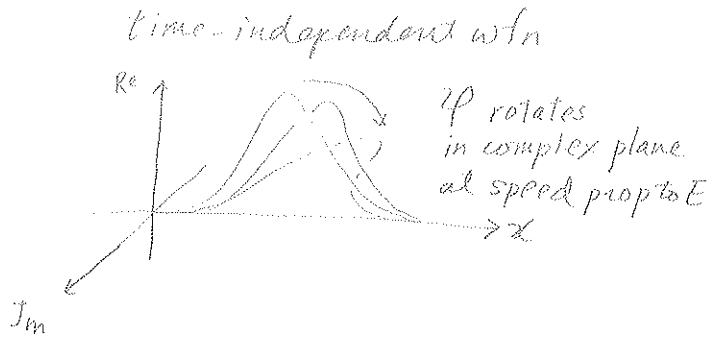 time-independent wfn
Re
ψ rotates
in complex plane
at speed prop to E
x
Im